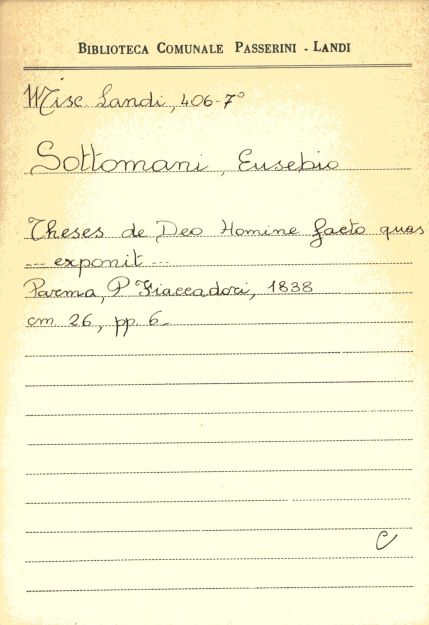 BIBLIOTECA COMUNALE PASSERINI - LANDI
Misc. Landi, 406-7°
Sottomani, Eusebio
Theses de Deo Homine facto quas
--- exponit ---
Parma, P. Fiaccadori, 1838
cm 26, pp. 6-
C